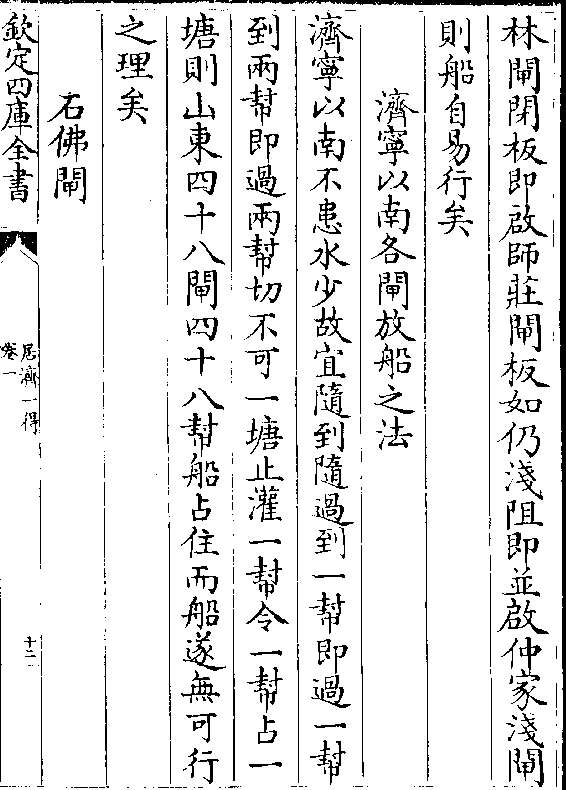 林閘閉板即啟師莊閘板如仍淺阻即並啟仲家淺閘
則船自易行矣
濟寧以南各閘放船之法
濟寧以南不患水少故宜隨到隨過到一幫即過一幫
到兩幫即過兩幫切不可一塘止灌一幫令一幫占一
塘則山東四十八閘四十八幫船占住而船遂無可行
之理矣
石佛閘
欽定四庫全書
居濟一得
卷一
十二